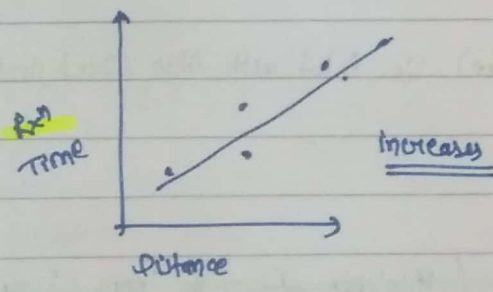 Rxn
Time
increases
Distance